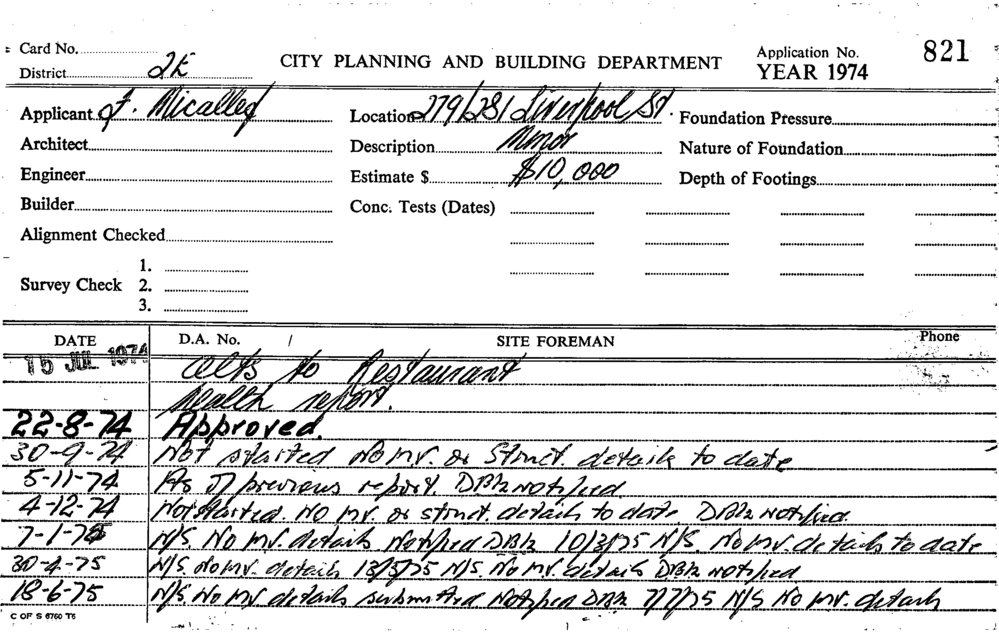 Card No.
District 2E
CITY PLANNING AND BUILDING DEPARTMENT
Application No. 821
YEAR 1974
Applicant J. Micallef
Location 279/281 Liverpool St.
Foundation Pressure
Architect
Description Minor
Nature of Foundation
Engineer
Estimate $ $10,000
Depth of Footings
Builder
Conc. Tests (Dates)
Alignment Checked
Survey Check 1.
2.
3.
DATE D.A. No. / SITE FOREMAN Phone
15 JUL 1974 Alts to Restaurant
Health report.
22-8-74 Approved.
30-9-74 Not started No mv. or Struct. details to date
5-11-74 As of previous report. notified
4-12-74 Not started. No mv. or struct. details to date notified.
7-1-75 N/S No mv. details Notified 10/3/75 N/S. No mv. details to date
30-4-75 N/S. No mv. details 13/5/75 N/S. No mv. details notified
18-6-75 N/S. No mv details submitted Notified 7/7/75 N/S No mv. details
C OF S 6760 T6